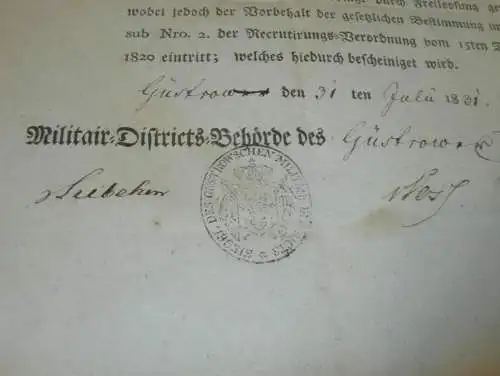 durch Freiloosung
wobei jedoch der Vorbehalt der gesetzlichen Bestimmung
sub Nro. 2. der Recrutirungs-Verordnung vom 15ten
1820 eintritt; welches hiedurch bescheiniget wird.
Güstrow den 31 ten July 1831.
Militair-Districts-Behörde des Güstrower